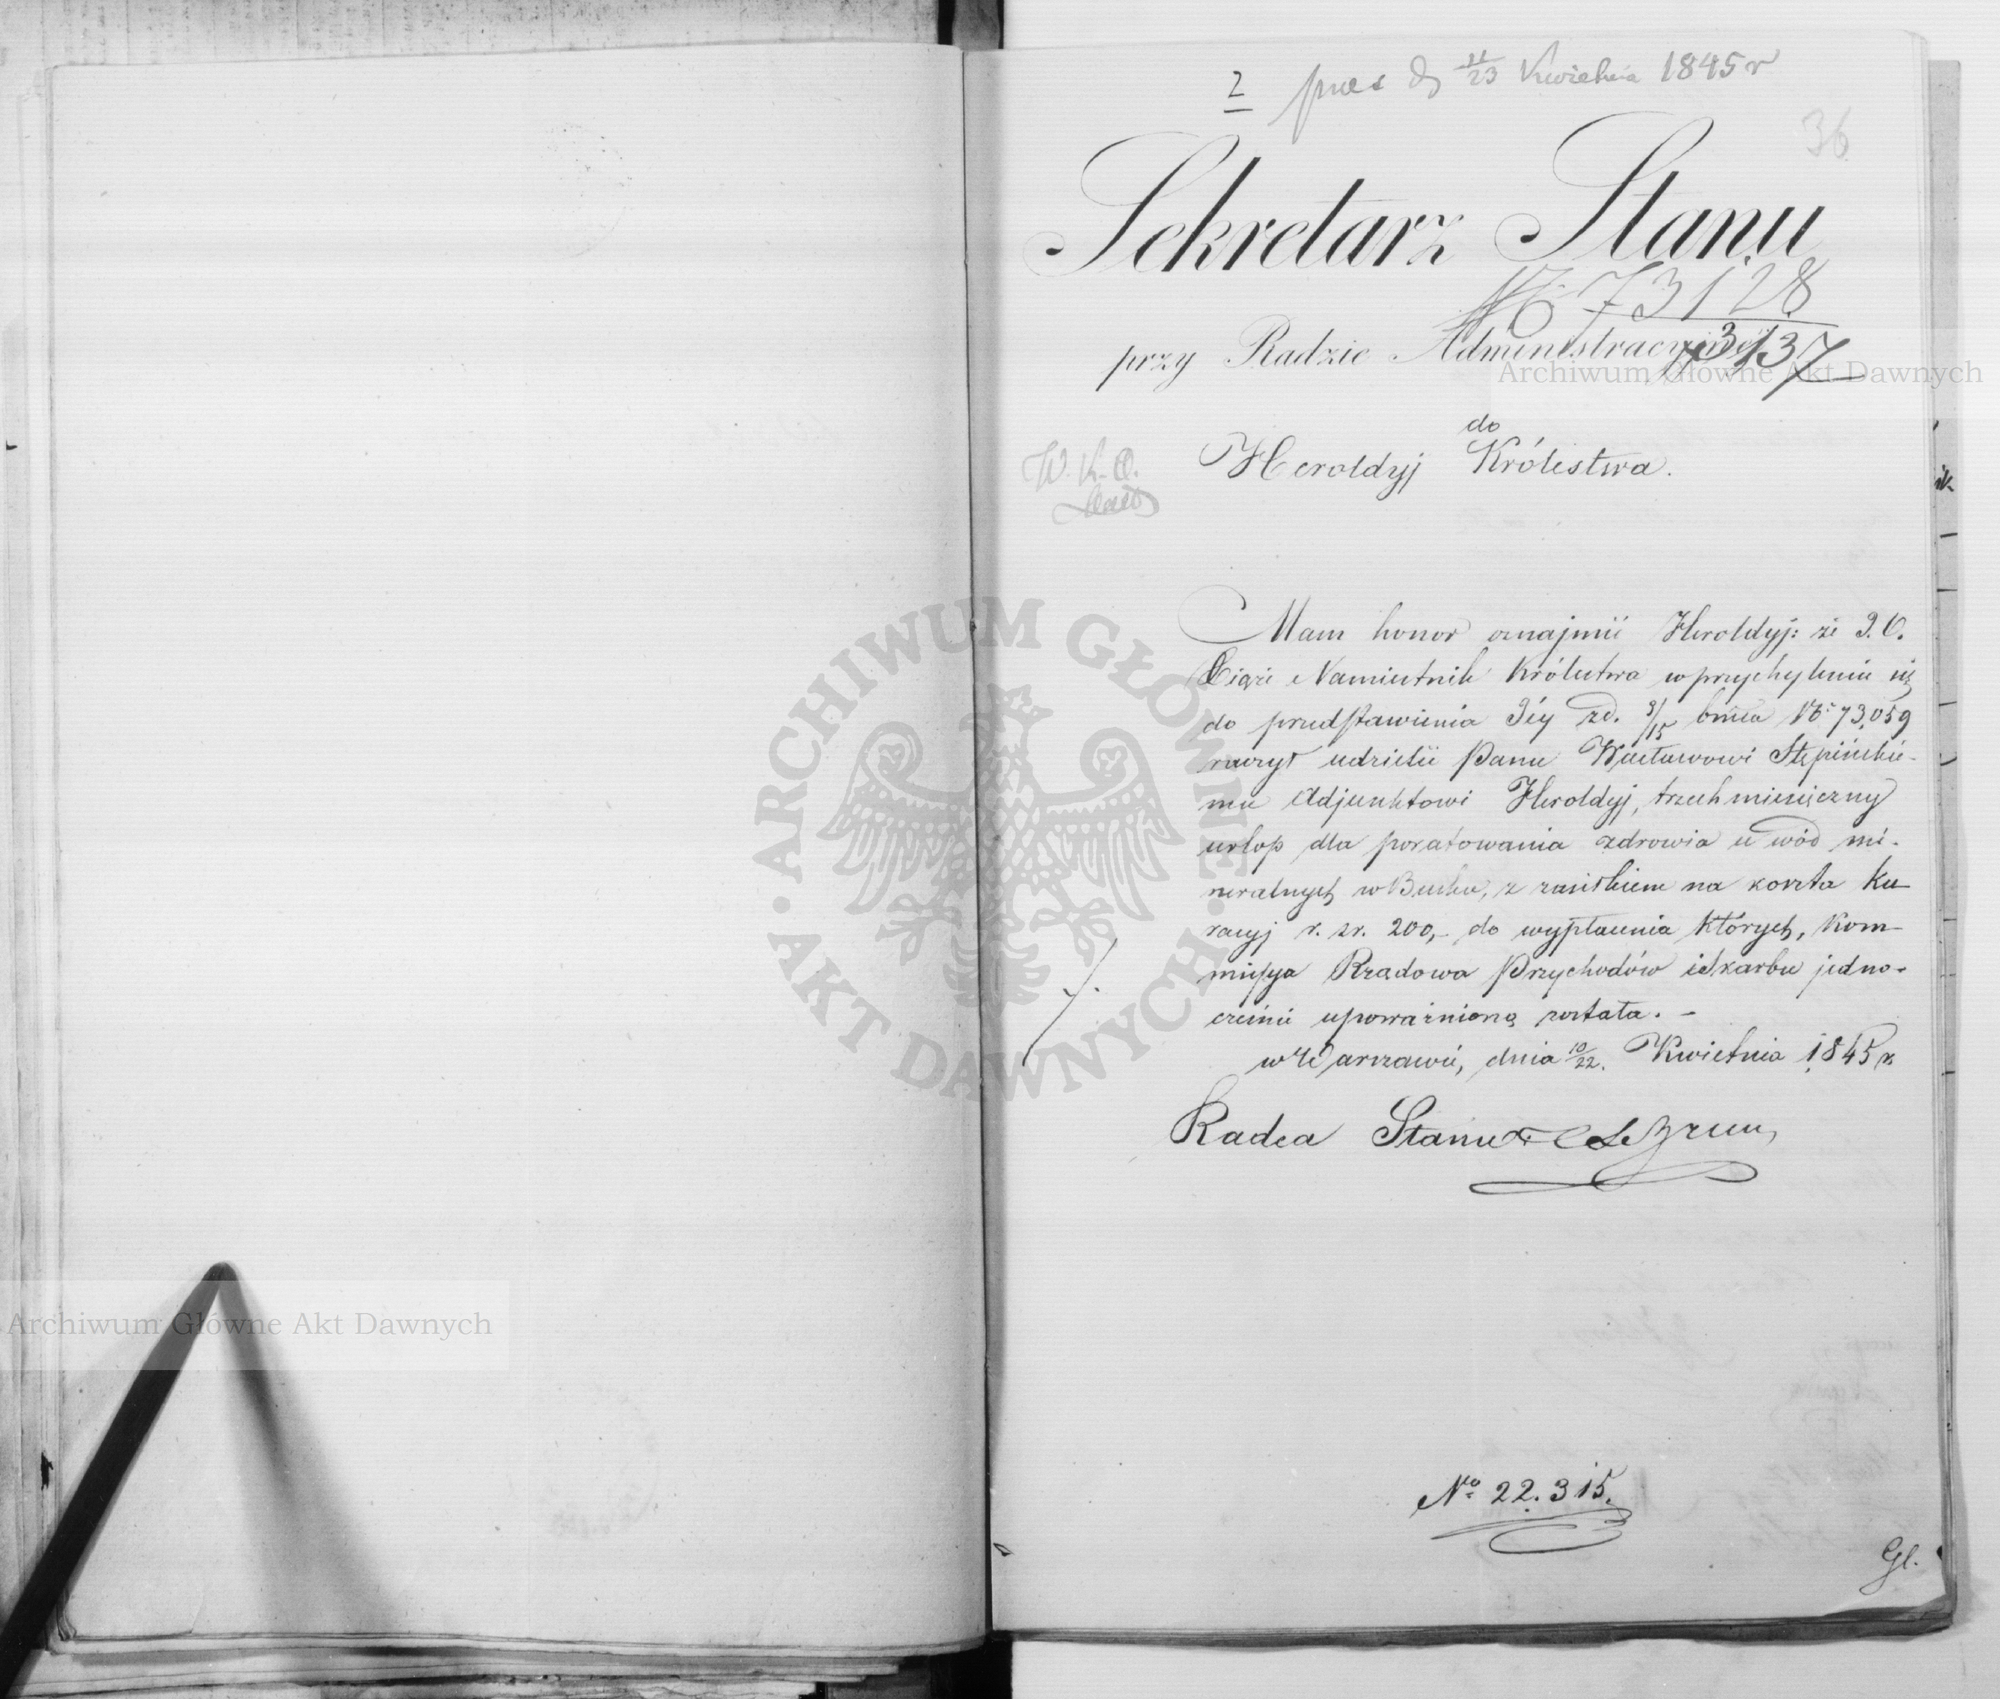 2 pres d 11/23 Kwietnia 1845 r
36
Sekretarz Stanu
№ 73128
przy Radzie Administracyjnej
73137
do
W. K. O.
Heroldyj Królestwa.
Mam honor oznajmić Heroldyj: że J.O.
Xiąże Namiestnik Królestwa w przychyleniu się
do przedstawienia Jéy zd. 3/15 bm̃ca № 73,059
raczył udzielić Panu Wacławowi Stępińskie-
mu Adjunktowi Heroldyj, trzechmiesięczny
urlop dla poratowania zdrowia u wód mi-
neralnych w Busku, z zasiłkiem na koszta Ku-
racyj r. sr. 200,- do wypłacenia których, Kom-
missya Rządowa Przychodów i Skarbu jedno-
cześnie upoważnioną została. -
w Warszawie, dnia 10/22. Kwietnia 1845 r.
Radca Stanu
№ 22.315.
Gl.
Archiwum Główne Akt Dawnych
Archiwum Główne Akt Dawnych
ARCHIWUM GŁÓWNE · AKT DAWNYCH ·